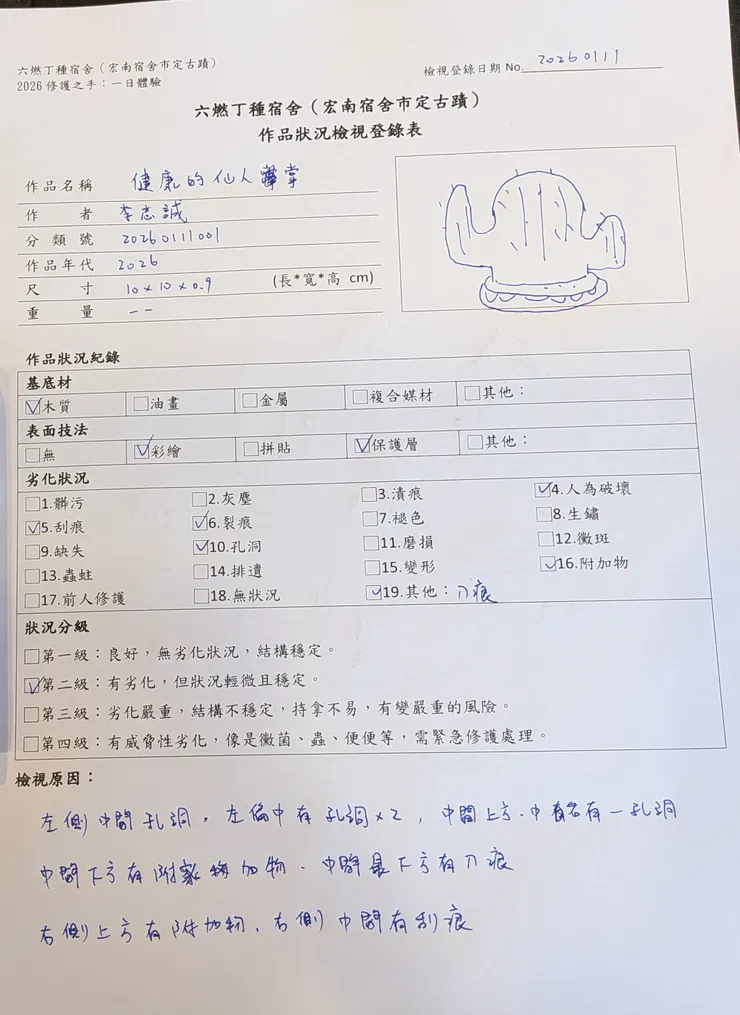 六燃丁種宿舍（宏南宿舍市定古蹟）
2026 修護之手：一日體驗
檢視登錄日期 No. 20260111
六燃丁種宿舍（宏南宿舍市定古蹟）
作品狀況檢視登錄表
作品名稱 健康的仙人掌
作者 李志誠
分類號 20260111001
作品年代 2026
尺寸 10 x 10 x 0.9 (長*寬*高 cm)
重量 --
作品狀況紀錄
基底材
☑木質 □油畫 □金屬 □複合媒材 □其他：
表面技法
□無 ☑彩繪 □拼貼 ☑保護層 □其他：
劣化狀況
□1.髒污 □2.灰塵 □3.漬痕 ☑4.人為破壞
☑5.刮痕 ☑6.裂痕 □7.褪色 □8.生鏽
□9.缺失 ☑10.孔洞 □11.磨損 □12.黴斑
□13.蟲蛀 □14.排遺 □15.變形 ☑16.附加物
□17.前人修護 □18.無狀況 ☑19.其他：刀痕
狀況分級
□第一級：良好，無劣化狀況，結構穩定。
☑第二級：有劣化，但狀況輕微且穩定。
□第三級：劣化嚴重，結構不穩定，持拿不易，有變嚴重的風險。
□第四級：有威脅性劣化，像是黴菌、蟲、便便等，需緊急修護處理。
檢視原因：
左側中間孔洞，左偏中有孔洞x2，中間上方、中有一孔洞
中間下方有附加物、中間最下方有刀痕
右側上方有附加物，右側中間有刮痕